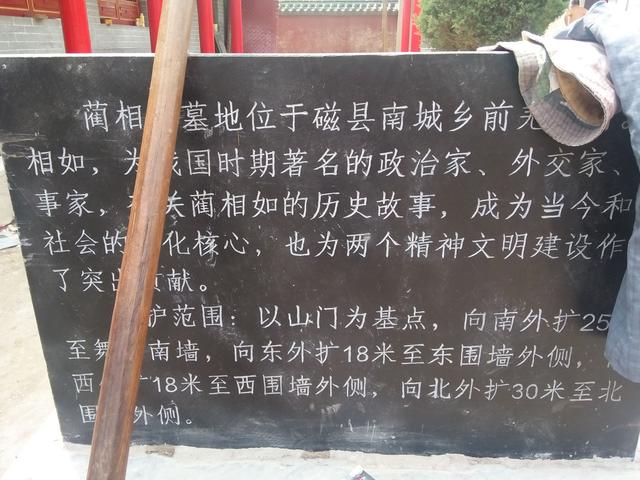 蔺相墓地位于磁县南城乡前羌。
相如，为战国时期著名的政治家、外交家、
事家，有关蔺相如的历史故事，成为当今和
社会的化核心，也为两个精神文明建设作
了突出贡献。
护范围：以山门为基点，向南外扩25
至舞南墙，向东外扩18米至东围墙外侧，
西外扩18米至西围墙外侧，向北外扩30米至北
围外侧。